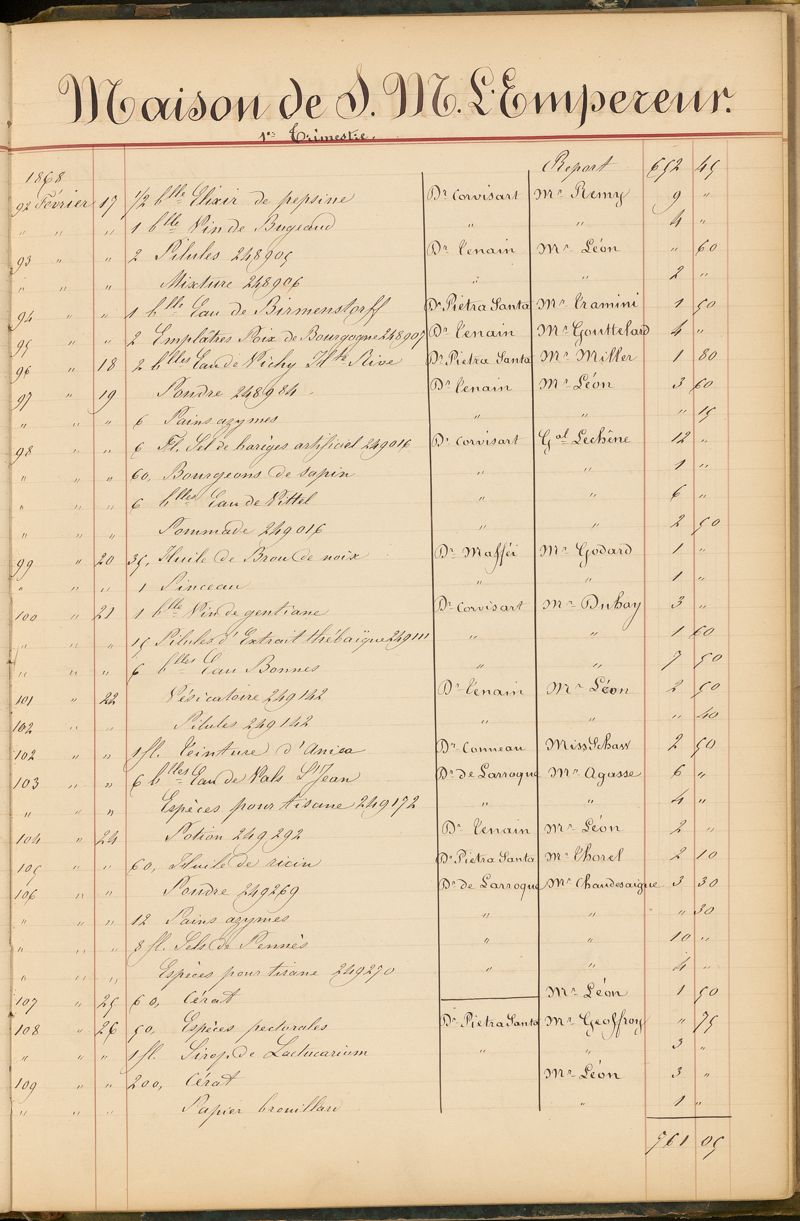 Maison de S. M. L'Empereur.
1er Trimestre.
1868 Report 652 45
92 Février 17 1/2 blle Elixir de pepsine Dr Corvisart Mr Remy 9 "
" " " 1 blle Vin de Bugeaud " " 4 "
93 " " 2 Pilules 248905 Dr Tenain Mr Léon " 60
" " " Mixture 248906 " " 2 "
94 " " 1 blle Eau de Birmenstorff Dr Pietra Santa Mr Tramini 1 50
95 " " 2 Emplâtres Poix de Bourgogne 248907 Dr Tenain Mr Gouttelard 4 "
96 " 18 2 blles Eau de Vichy Hte Rive Dr Pietra Santa Mr Miller 1 80
97 " 19 Poudre 248984 Dr Tenain Mr Léon 3 60
" " " 6 Pains azymes " " " 15
98 " " 6 Fl. Sel de barèges artificiel 249016 Dr Corvisart Gal Lechêne 12 "
" " " 60, Bourgeons de sapin " " 1 "
" " " 6 blles Eau de Vittel " " 6 "
" " " Pommade 249016 " " 2 50
99 " 20 35, Huile de Brou de noix Dr Mafféi Mr Godard 1 "
" " " 1 Pinceau " " 1 "
100 " 21 1 blle Vin de gentiane Dr Corvisart Mr Duhay 3 "
" " " 15 Pilules d'Extrait thébaïque 249111 " " 1 60
" " " 6 blles Eau Bonnes " " 7 50
101 " 22 Vésicatoire 249142 Dr Tenain Mr Léon 2 50
102 " " Pilules 249142 " " " 40
102 " " 1 fl. Teinture d'Anica Dr Conneau Miss Schaw 2 50
103 " " 6 blles Eau de Vals St Jean Dr de Larroque Mr Agasse 6 "
" " " Espèces pour tisane 249172 " " 4 "
104 " 24 Potion 249292 Dr Tenain Mr Léon 2 "
105 " " 60, Huile de ricin Dr Pietra Santa Mr Thorel 2 10
106 " " Poudre 249269 Dr de Larroque Mr Chaudesaigue 3 30
" " " 12 Pains azymes " " " 30
" " " 8 fl. Sels de Pennès " " 10 "
" " " Espèces pour tisane 249270 " " 4 "
107 " 25 60, Cérat Mr Léon 1 50
108 " 26 50, Espèces pectorales Dr Pietra Santa Mr Geoffroy " 75
" " " 1 fl. Sirop de Lactucarium " " 3 "
109 " " 200, Cérat Mr Léon 3 "
" " " Papier brouillard " 1 "
761 05